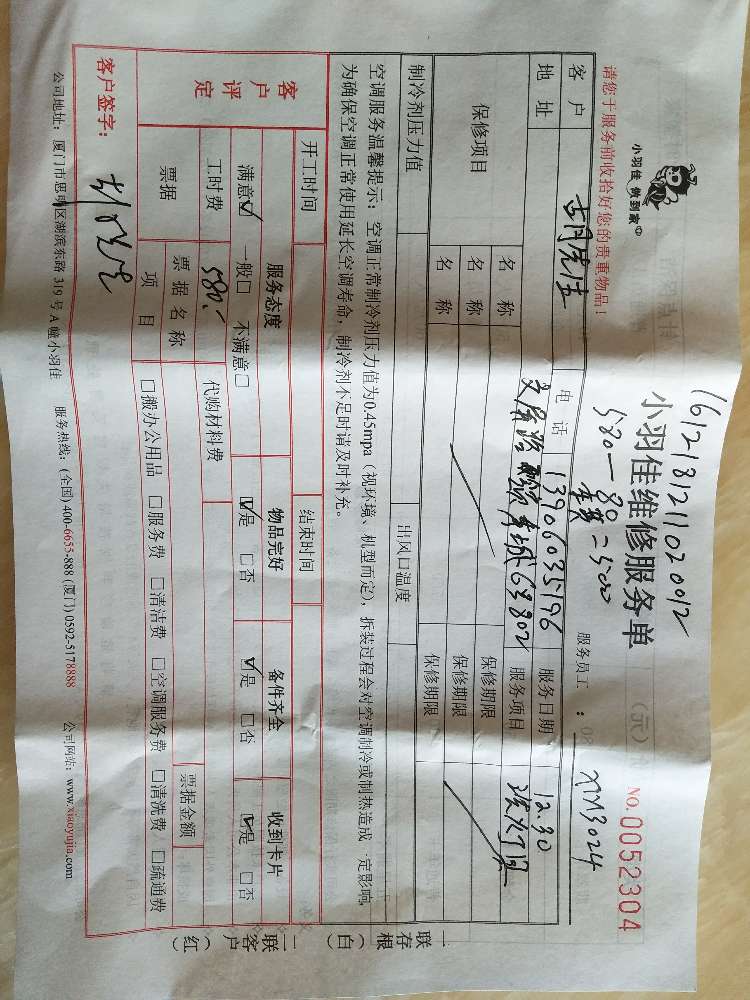 161218121102002
580-80=500
小羽佳 做到家
小羽佳维修服务单
NO.0052304
请您于服务前收拾好您的贵重物品!
服务员工: XM3024
客户 电话 13906035196 服务日期 12.30
地址 63802 服务项目
保修项目 名称 保修期限
名称 保修期限
名称 保修期限
制冷剂压力值 出风口温度
空调服务温馨提示: 空调正常制冷剂压力值为0.45mpa(视环境、机型而定), 拆装过程会对空调制冷或制热造成一定影响,
为确保空调正常使用延长空调寿命, 制冷剂不足时请及时补充。
开工时间 结束时间
客户评定 服务态度 物品完好 备件齐全 收到卡片
满意☑ 一般□ 不满意□ ☑是 □否 ☑是 □否 ☑是 □否
工时费 580.- 代购材料费
票据 票据名称 票据金额
项目 □搬办公用品 □服务费 □清洁费 □空调服务费 □清洗费 □疏通费
客户签字:
公司地址: 厦门市思明区湖滨东路319号A幢小羽佳 服务热线: (全国)400-6655-888 (厦门)0592-5178888 公司网站: www.xiaoyujia.com
一联存根(白)
二联客户(红)